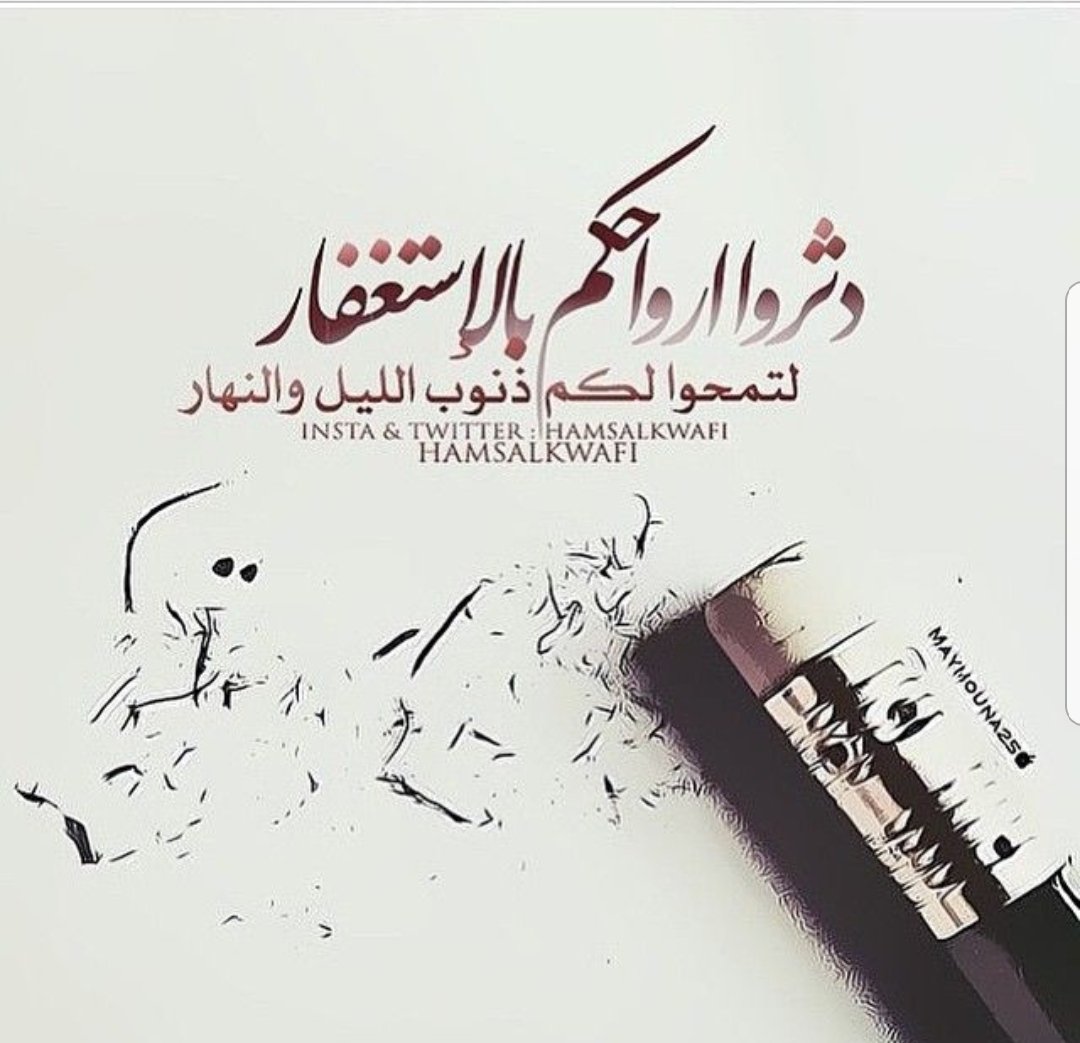 دثروا ارواحكم بالإستغفار
لتمحوا لكم ذنوب الليل والنهار
INSTA & TWITTER : HAMSALKWAFI
HAMSALKWAFI
MAYMOUNA256